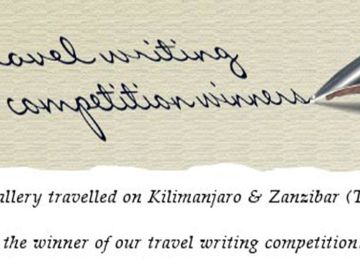 ravel writing
competition winners
allery travelled on Kilimanjaro & Zanzibar (T
the winner of our travel writing competition.